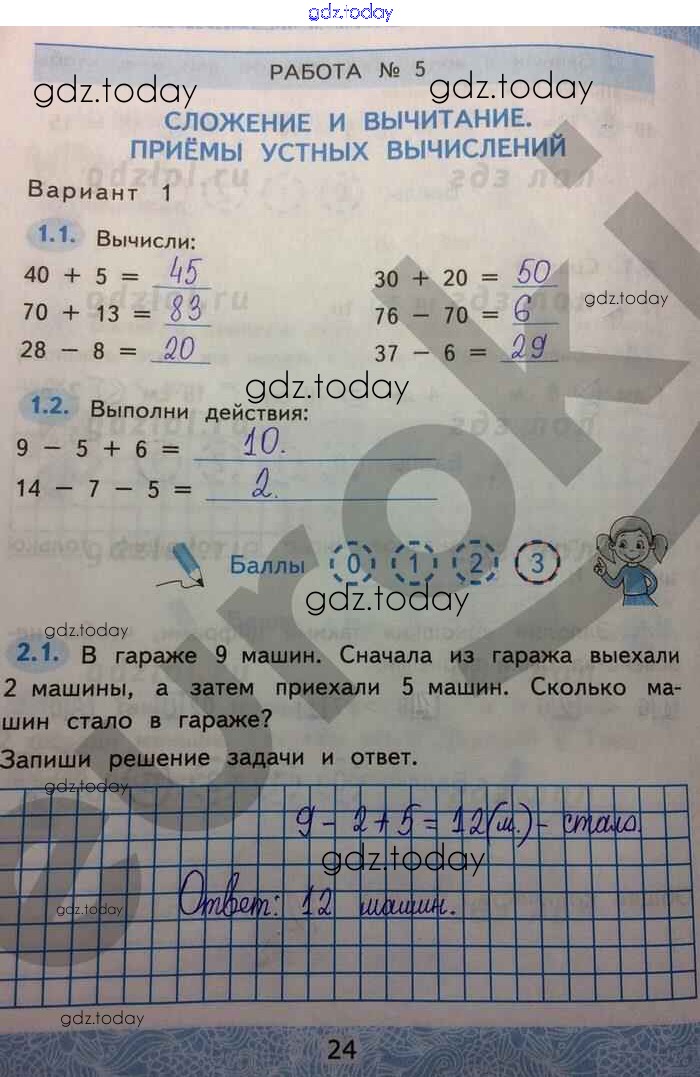 gdz.today
РАБОТА № 5
gdz.today gdz.today
СЛОЖЕНИЕ И ВЫЧИТАНИЕ.
ПРИЁМЫ УСТНЫХ ВЫЧИСЛЕНИЙ
Вариант 1
1.1. Вычисли:
40 + 5 = 45 30 + 20 = 50
gdz.today
70 + 13 = 83 76 − 70 = 6
28 − 8 = 20 37 − 6 = 29
gdz.today
1.2. Выполни действия:
9 − 5 + 6 = 10.
14 − 7 − 5 = 2.
Баллы 0 1 2 3
gdz.today
gdz.today
2.1. В гараже 9 машин. Сначала из гаража выехали
2 машины, а затем приехали 5 машин. Сколько ма-
шин стало в гараже?
Запиши решение задачи и ответ.
gdz.today
9 − 2 + 5 = 12 (м.) − стало.
gdz.today
Ответ: 12 машин.
gdz.today
gdz.today
24
euroki